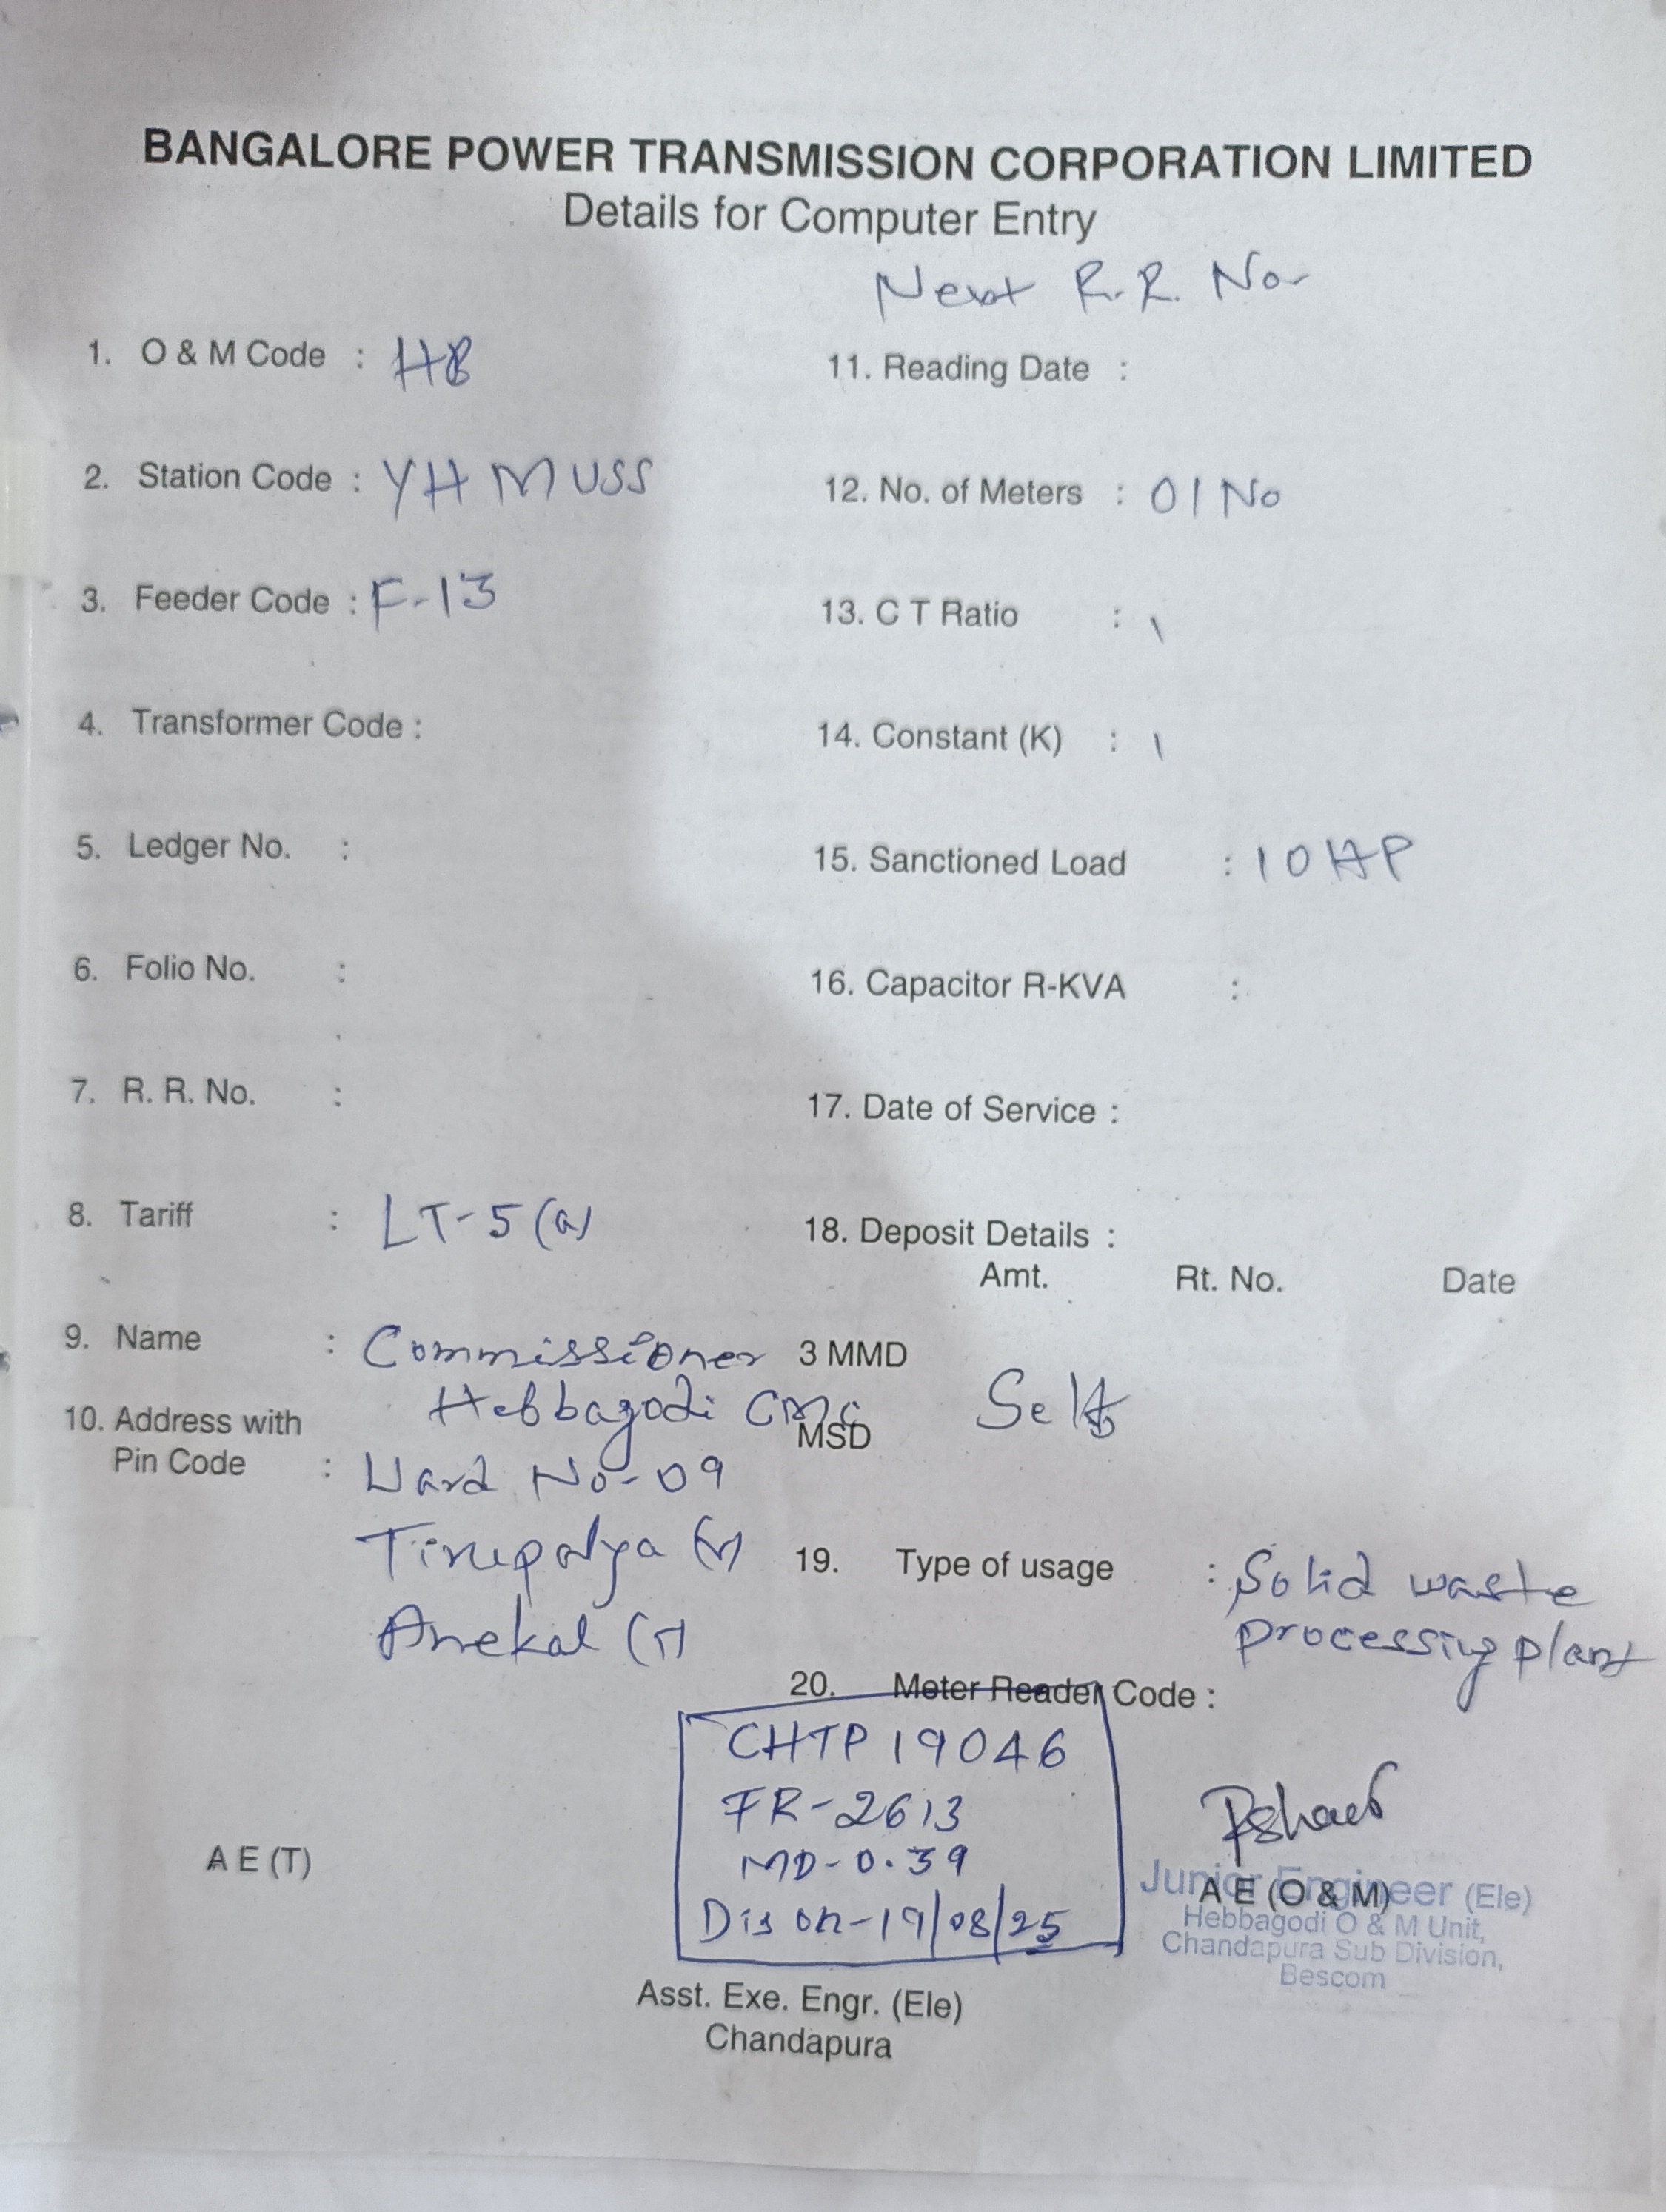 BANGALORE POWER TRANSMISSION CORPORATION LIMITED
Details for Computer Entry
Next R.R. No-
1. O & M Code : HB
11. Reading Date :
2. Station Code : YH MUSS
12. No. of Meters : 01 No
3. Feeder Code : F-13
13. C T Ratio : 1
4. Transformer Code :
14. Constant (K) : 1
5. Ledger No. :
15. Sanctioned Load : 10 HP
6. Folio No. :
16. Capacitor R-KVA :
7. R. R. No. :
17. Date of Service :
8. Tariff : LT-5(a)
18. Deposit Details :
Amt. Rt. No. Date
9. Name : Commissioner
3 MMD
Hebbagodi CMC
Self
10. Address with
MSD
Pin Code : Ward No-09
Tirupalya (V)
19. Type of usage : Solid waste
Anekal (T)
processing plant
20. Meter Reader Code :
CHTP 19046
FR-2613
MD-0.39
Dis on-19/08/25
A E (T)
A E (O & M)
Junior Engineer (Ele)
Hebbagodi O & M Unit,
Chandapura Sub Division,
Bescom
Asst. Exe. Engr. (Ele)
Chandapura